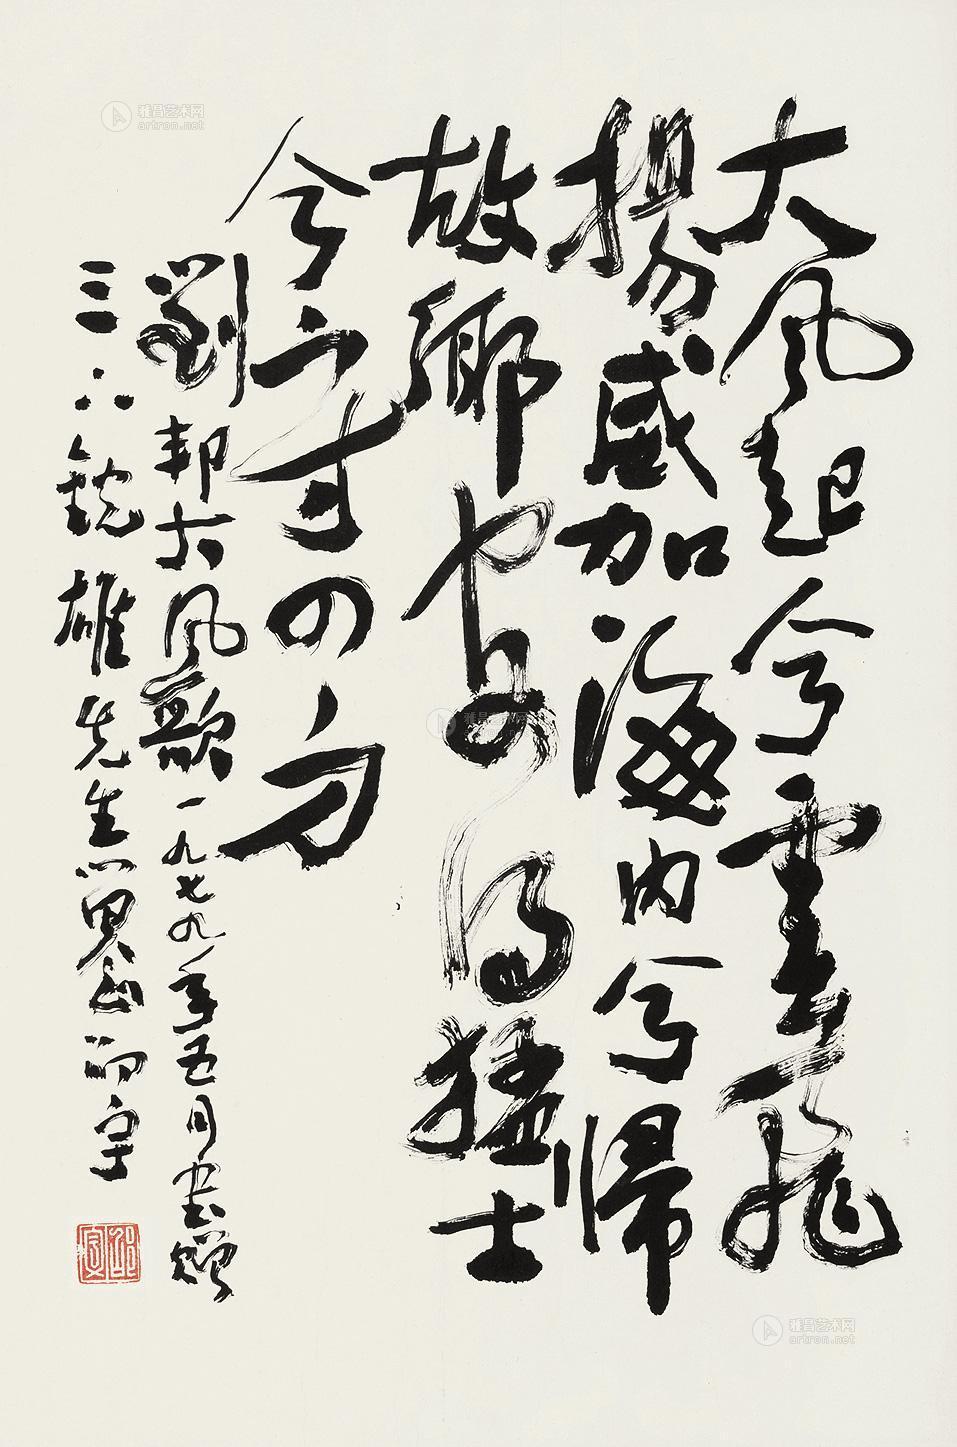 大風起兮雲飛
揚威加海內兮歸
故鄉安得猛士
兮守四方
劉邦大風歌一九七九年五月書贈
三六銳雄先生
宇
雅昌艺术网
artron.net
雅昌艺术网
artron.net